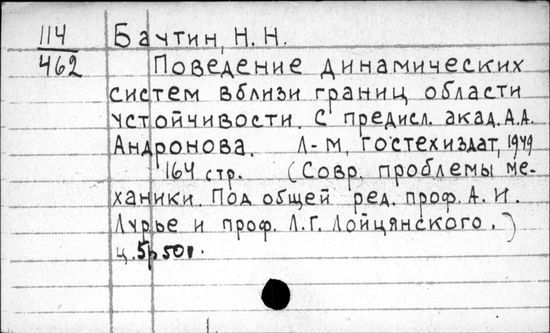 114
462
Баутин, Н. Н.
Поведение динамических
систем вблизи границ области
устойчивости. С предисл. акад. А.А.
Андронова. Л-М, Гостехиздат, 1949
164 стр. (Совр. проблемы ме-
ханики. Под общей ред. проф. А. И.
Лурье и проф. Л.Г. Лойцянского.)
ц. 5р50к.